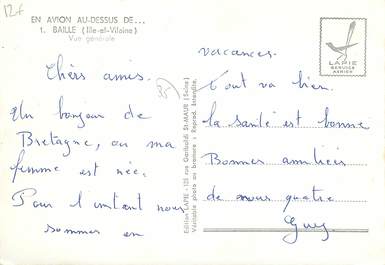 12f
EN AVION AU-DESSUS DE...
1. BAILLÉ (Ille-et-Vilaine)
Vue générale
35
Chers amis.
Un bonjour de
Bretagne, ou ma
femme est née.
Pour l'instant nous
sommes en
Edition LAPIE - 125 rue Garibaldi St-MAUR (Seine)
Véritable photo au bromure - Reprod. Interdite.
LAPIE
SERVICE
AERIEN
vacances.
Tout va bien.
la santé est bonne
Bonnes amitiés
de nous quatre
Guy